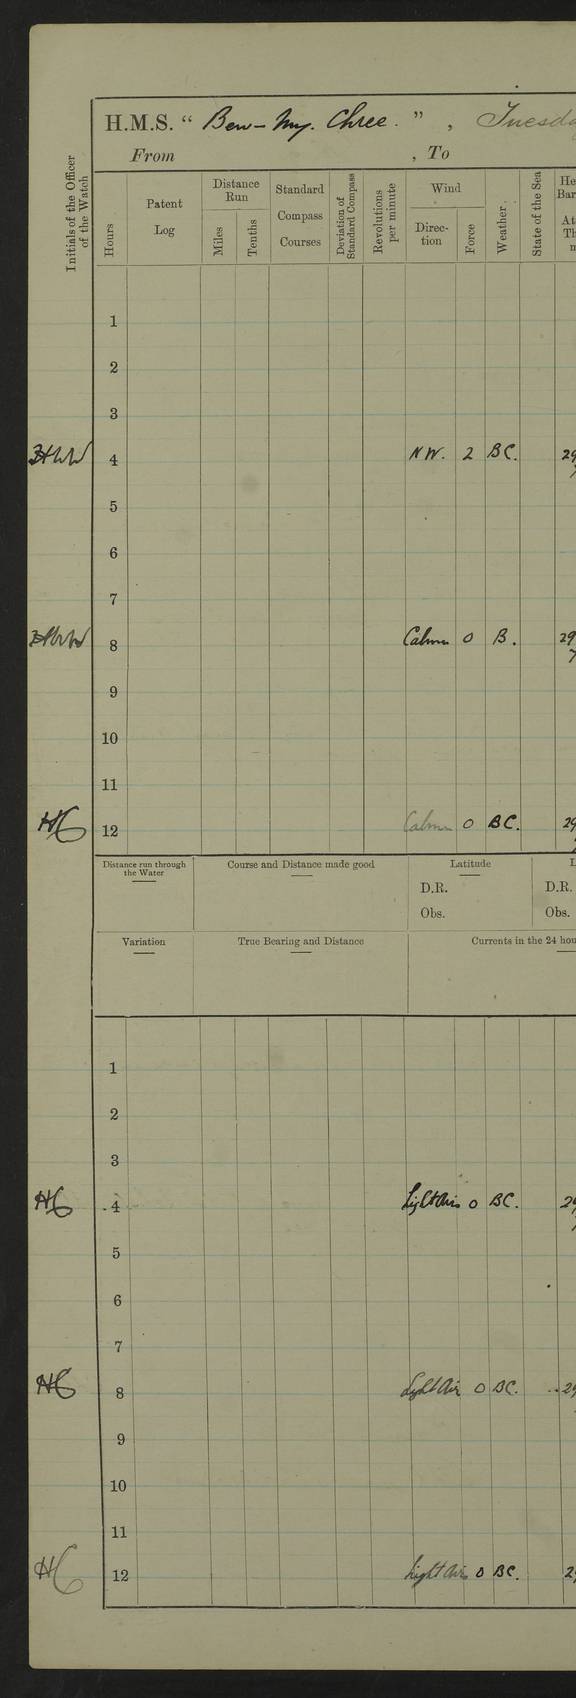 H.M.S. “ Ben-My-Chree. ” , Tuesda
From , To
Initials of the Officer of the Watch
Hours
Patent Log
Distance Run
Miles
Tenths
Standard Compass Courses
Deviation of Standard Compass
Revolutions per minute
Wind
Direc- tion
Force
Weather.
State of the Sea
He
Bar
At
Th
m
1
2
3
4 NW. 2 BC. 29
5
6
7
8 Calm 0 B. 29
9
10
11
12 Calm 0 BC. 29
Distance run through the Water
Course and Distance made good
Latitude
D.R. D.R.
Obs. Obs.
Variation
True Bearing and Distance
Currents in the 24 hou
1
2
3
HC 4 Light Airs 0 BC. 29
5
6
7
HC 8 Light Air 0 BC. 29
9
10
11
HC 12 Light Airs 0 BC. 29